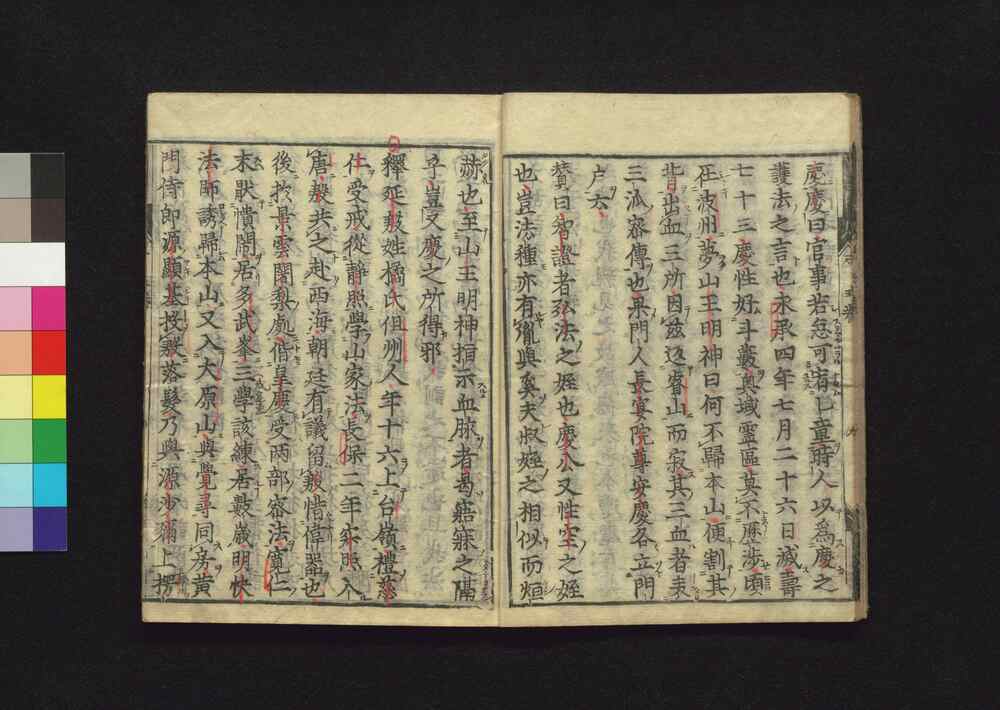 慶慶曰官事若忽可省乜童冊人以爲慶之
護法之言也永承四年七月二十六日滅壽
七十三慶性好斗藪奧域靈區莫不歷渉頃
在波州夢山王明神曰何不歸本山便割其
背出血三所因茲返睿山而寂其三血者表
三瓜密傳也果門人長宴院尊安慶各立門
户云
贊曰智證者弘法之姪也慶公又性空之姪
也豈法種亦有胤與奚夫叔姪之相似而烜
赫也至山王明神揩示血脉者曷寤寐之隔
乎豈又慶之所得邪
釋延殷姓橘氏但州人年十六上台嶺禮慈
仁受戒從靜照學山家法長保二年寂照入
唐殷共之赴西海朝廷有議留殷惜偉器也
後於景雲闍梨處偕皇慶受兩部密法寬仁
末猒憒閙居多武峯三學該練居數歲明快
法師誘歸本山又入大原山與覺尋同房黄
門侍郎源顯基投殷落髮乃與源沙彌上楞